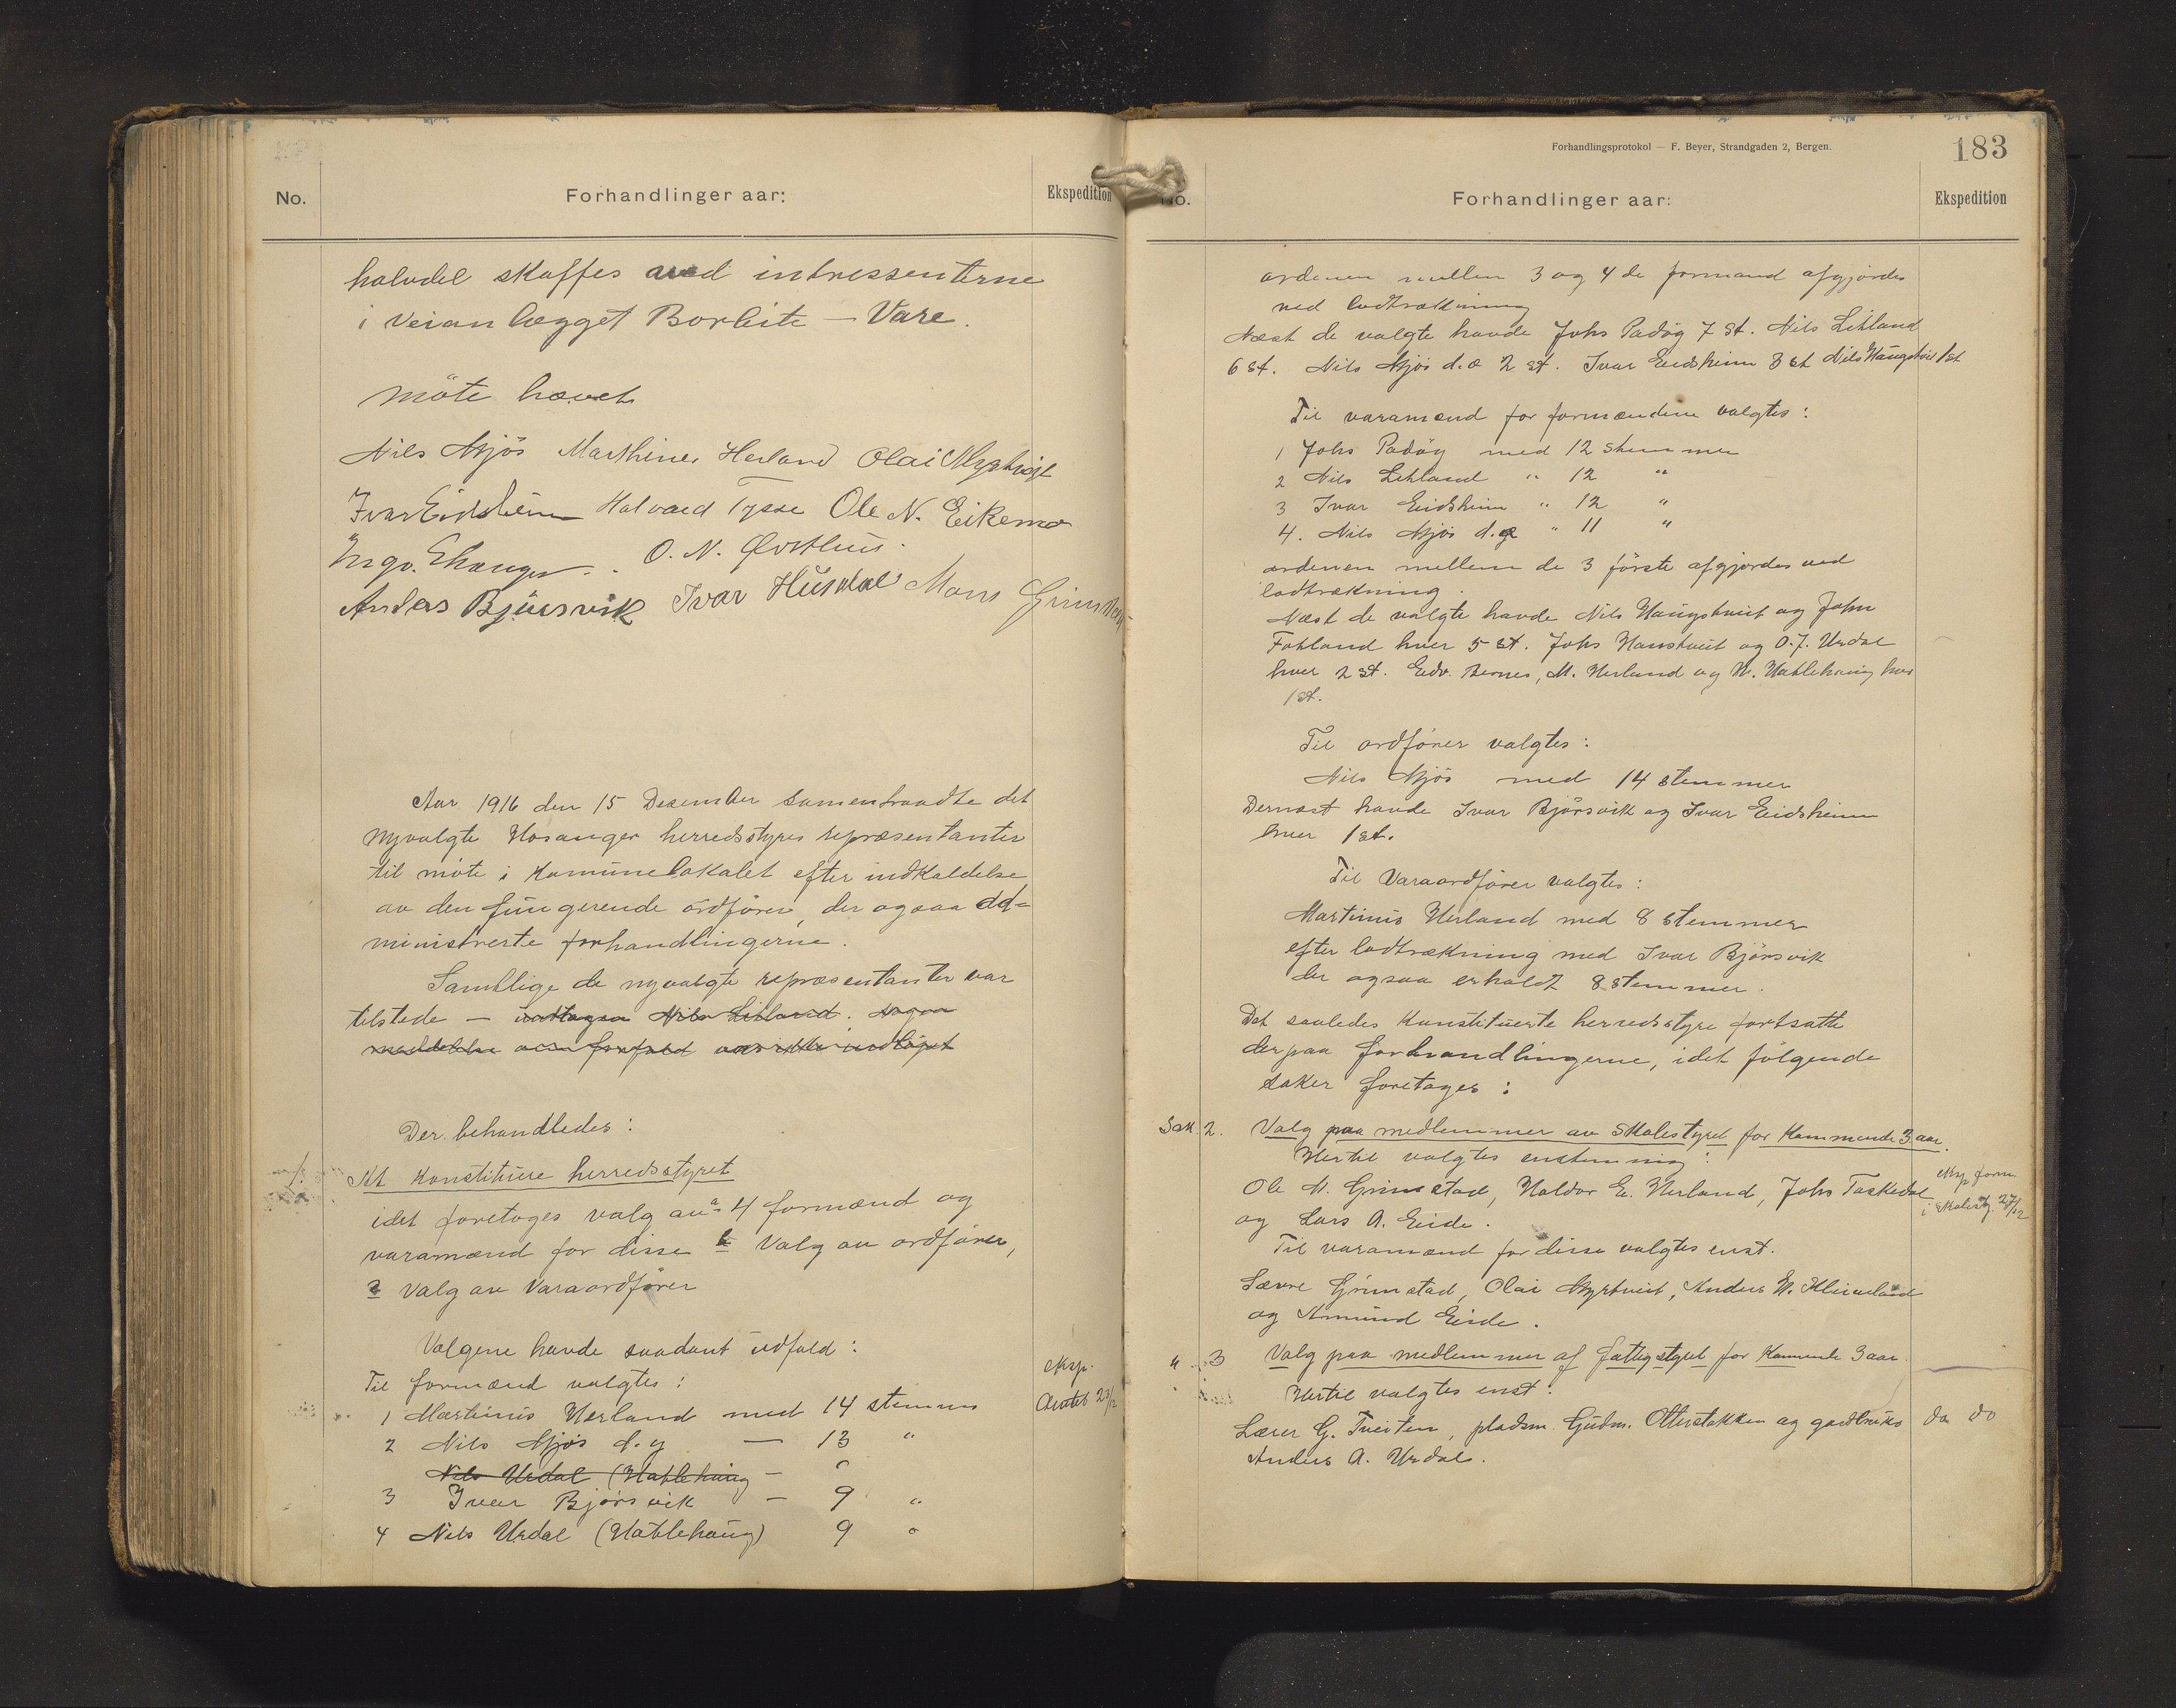 No.
Forhandlinger aar:
Ekspedition
halvdel skaffes ved intressenterne
i veianlægget Borleite — Vare.
Möte hævet
Nils Mjös Marthines Herland Olai Myrtveit
Ivar Eidsheim Halvard Tysse Ole N. Eikemo
Ingv. Ekanger. O. N. Øvsthus.
Anders Bjørsvik Ivar Husdal Mons Grimstad
Aar 1916 den 15 Desember samentraadte det
nyvalgte Hosanger herredsstyres repræsentanter
til möte i Komunelokalet efter indkaldelse
av den fungerende ordförer, der ogsaa ad-
ministrerte forhandlingerne.
Samtlige de nyvalgte repræsentanter var
tilstede — undtagen Nils Litland. nogen
meddelelse om forfald var ikke indlöpet
Der behandledes:
1. At Konstituere herredsstyret
idet foretoges valg av a 4 formænd og
varamænd for disse b Valg av ordförer,
3 valg av varaordförer
Valgene havde saadant udfald:
Til formænd valgtes:
1 Martinus Herland med 14 stemmer
2 Nils Mjös d.y — 13 "
Nils Urdal (Hatlehaug —
3 Ivar Bjørsvik — 9 "
4 Nils Urdal (Hatlehaug) 9 "
Eksp.
23/12
Forhandlingsprotokol — F. Beyer, Strandgaden 2, Bergen.
183
No.
Forhandlinger aar:
Ekspedition
ordenen mellem 3 og 4 de formand afgjordes
ved lodtrækning
Næst de valgte havde Johs Padöy 7 st. Nils Litland
6 st. Nils Mjös d.æ 2 st. Ivar Eidsheim 3 st Nils Haugstveit 1 st
Til varamænd for formændene valgtes:
1 Johs Padöy med 12 stemmer
2 Nils Litland " 12 "
3 Ivar Eidsheim " 12 "
4. Nils Mjös d.æ " 11 "
ordenen mellem de 3 förste afgjordes ved
lodtrækning.
Næst de valgte havde Nils Haugstveit og John
Fotland hver 5 st. Johs Hanstveit og O. J. Urdal
hver 2 st. Edv. Bernes, M. Herland og N. Hatlehaug hver
1 st.
Til ordförer valgtes:
Nils Mjös med 14 stemmer
Dernæst havde Ivar Bjørsvik og Ivar Eidsheim
hver 1 st.
Til Varaordförer valgtes:
Martinus Herland med 8 stemmer
efter lodtrækning med Ivar Bjørsvik
der ogsaa erholdt 8 stemmer.
Det saaledes Konstituerte herredsstyre fortsatte
derpaa forhandlingerne, idet fölgende
saker foretoges:
Sak. 2. Valg paa medlemmer av Skolestyret for Kommende 3 aar.
Hertil valgtes enstemmig:
Ole M. Grimstad, Haldor E. Herland, Johs Taskedal
og Lars A. Eide.
Eksp form
i skolest. 27/12
Til varamænd for disse valgtes enst.
Sævre Grimstad, Olai Myrtveit, Anders N. Kleiveland
og Amund Eide.
" 3 Valg paa medlemmer af fattigstyret for Komende 3 aar
Hertil valgtes enst:
Lærer G. Tveiten, pladsm. Gudm. Otterstakken og gardbruks
Anders A. Urdal.
do do